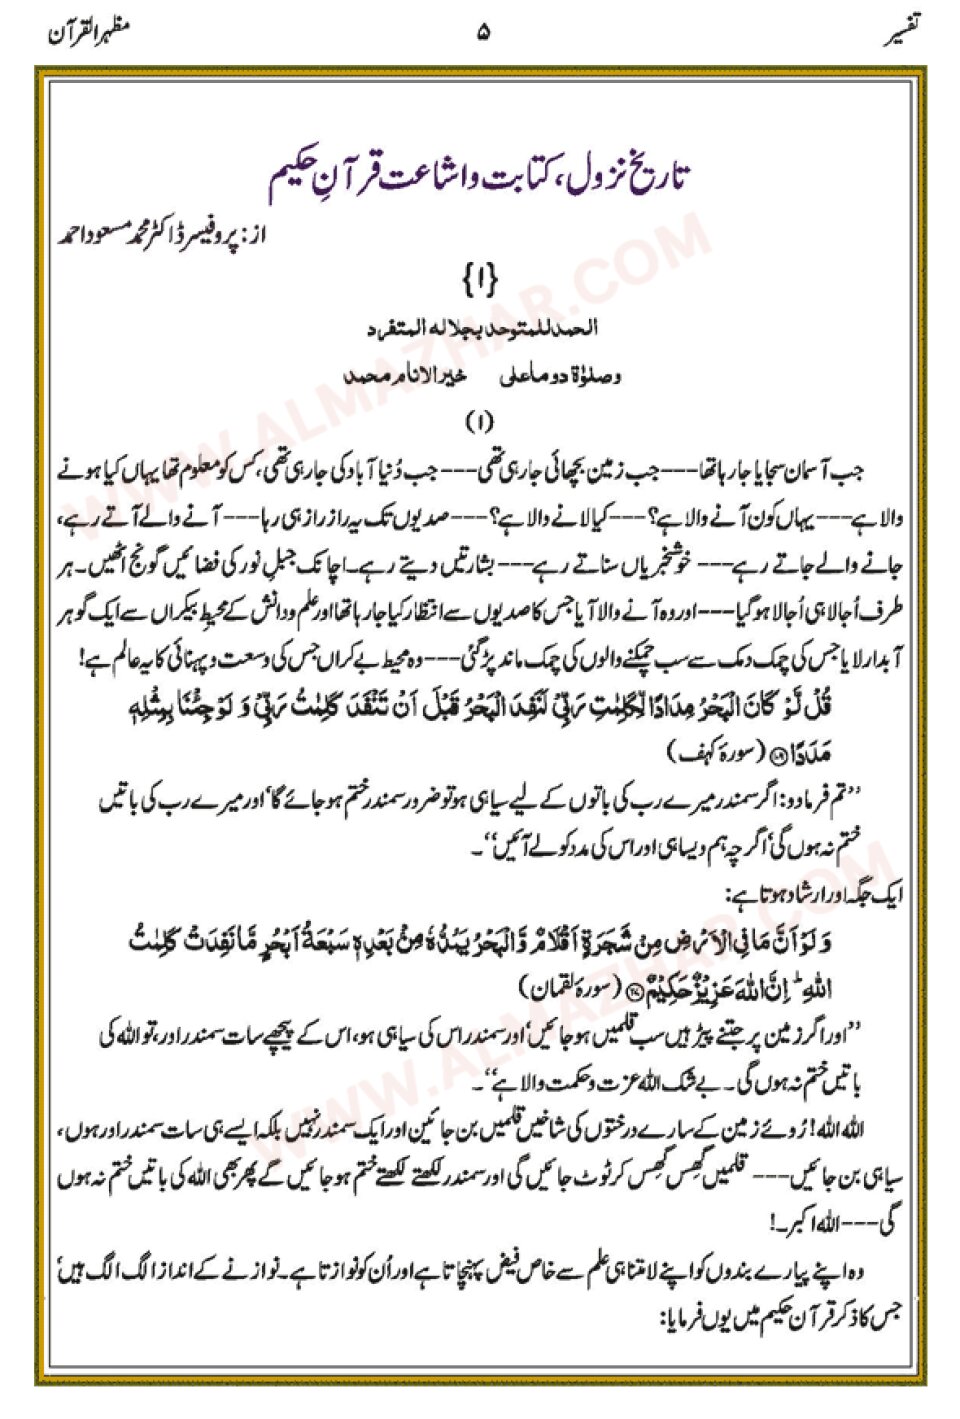 تفسیر ۵ مظہرالقرآن
تاریخ نزول، کتابت و اشاعت قرآنِ حکیم
از: پروفیسر ڈاکٹر محمد مسعود احمد
{۱}
الحمد للمتوحد بجلاله المتفرد
وصلوٰۃ دوما علی خیر الانام محمد
(۱)
جب آسمان سجایا جا رہا تھا---جب زمین بچھائی جا رہی تھی---جب دُنیا آباد کی جا رہی تھی، کس کو معلوم تھا یہاں کیا ہونے
والا ہے---یہاں کون آنے والا ہے؟---کیا لانے والا ہے؟---صدیوں تک یہ راز راز ہی رہا---آنے والے آتے رہے،
جانے والے جاتے رہے---خوشخبریاں سناتے رہے---بشارتیں دیتے رہے۔ اچانک جبلِ نور کی فضائیں گونج اٹھیں۔ ہر
طرف اُجالا ہی اُجالا ہو گیا---اور وہ آنے والا آیا جس کا صدیوں سے انتظار کیا جا رہا تھا اور علم و دانش کے محیطِ بیکراں سے ایک گوہر
آبدار لایا جس کی چمک دمک سے سب چمکنے والوں کی چمک ماند پڑ گئی---وہ محیط بے کراں جس کی وسعت و پہنائی کا یہ عالم ہے!
قُلْ لَّوْ كَانَ الْبَحْرُ مِدَادًا لِّكَلِمٰتِ رَبِّیْ لَنَفِدَ الْبَحْرُ قَبْلَ اَنْ تَنْفَدَ كَلِمٰتُ رَبِّیْ وَ لَوْ جِئْنَا بِمِثْلِهٖ
مَدَدًا ﴿۱۰۹﴾ (سورۂ کہف)
’’تم فرما دو: اگر سمندر میرے رب کی باتوں کے لیے سیاہی ہو تو ضرور سمندر ختم ہو جائے گا‘ اور میرے رب کی باتیں
ختم نہ ہوں گی‘ اگرچہ ہم ویسا ہی اور اس کی مدد کو لے آئیں‘‘۔
ایک جگہ اور ارشاد ہوتا ہے:
وَ لَوْ اَنَّ مَا فِی الْاَرْضِ مِنْ شَجَرَةٍ اَقْلَامٌ وَّ الْبَحْرُ یَمُدُّهٗ مِنْۢ بَعْدِهٖ سَبْعَةُ اَبْحُرٍ مَّا نَفِدَتْ كَلِمٰتُ
اللّٰهِ ؕ اِنَّ اللّٰهَ عَزِیْزٌ حَكِیْمٌ ﴿۲۷﴾ (سورۂ لقمان)
’’اور اگر زمین پر جتنے پیڑ ہیں سب قلمیں ہو جائیں‘ اور سمندر اس کی سیاہی ہو، اس کے پیچھے سات سمندر اور، تو اللہ کی
باتیں ختم نہ ہوں گی۔ بے شک اللہ عزت و حکمت والا ہے‘‘۔
اللہ اللہ! رُوئے زمین کے سارے درختوں کی شاخیں قلمیں بن جائین اور ایک سمندر نہیں بلکہ ایسے ہی سات سمندر اور ہوں،
سیاہی بن جائیں---قلمیں گھس گھس کر ٹوٹ جائیں گی اور سمندر لکھتے لکھتے ختم ہو جائیں گے پھر بھی اللہ کی باتیں ختم نہ ہوں
گی---اللہ اکبر۔!
وہ اپنے پیارے بندوں کو اپنے لامتناہی علم سے خاص فیض پہنچاتا ہے اور اُن کو نوازتا ہے۔ نوازنے کے انداز الگ الگ ہیں‘
جس کا ذکر قرآن حکیم میں یوں فرمایا:
WWW.ALMAZHAR.COM
WWW.ALMAZHAR.COM